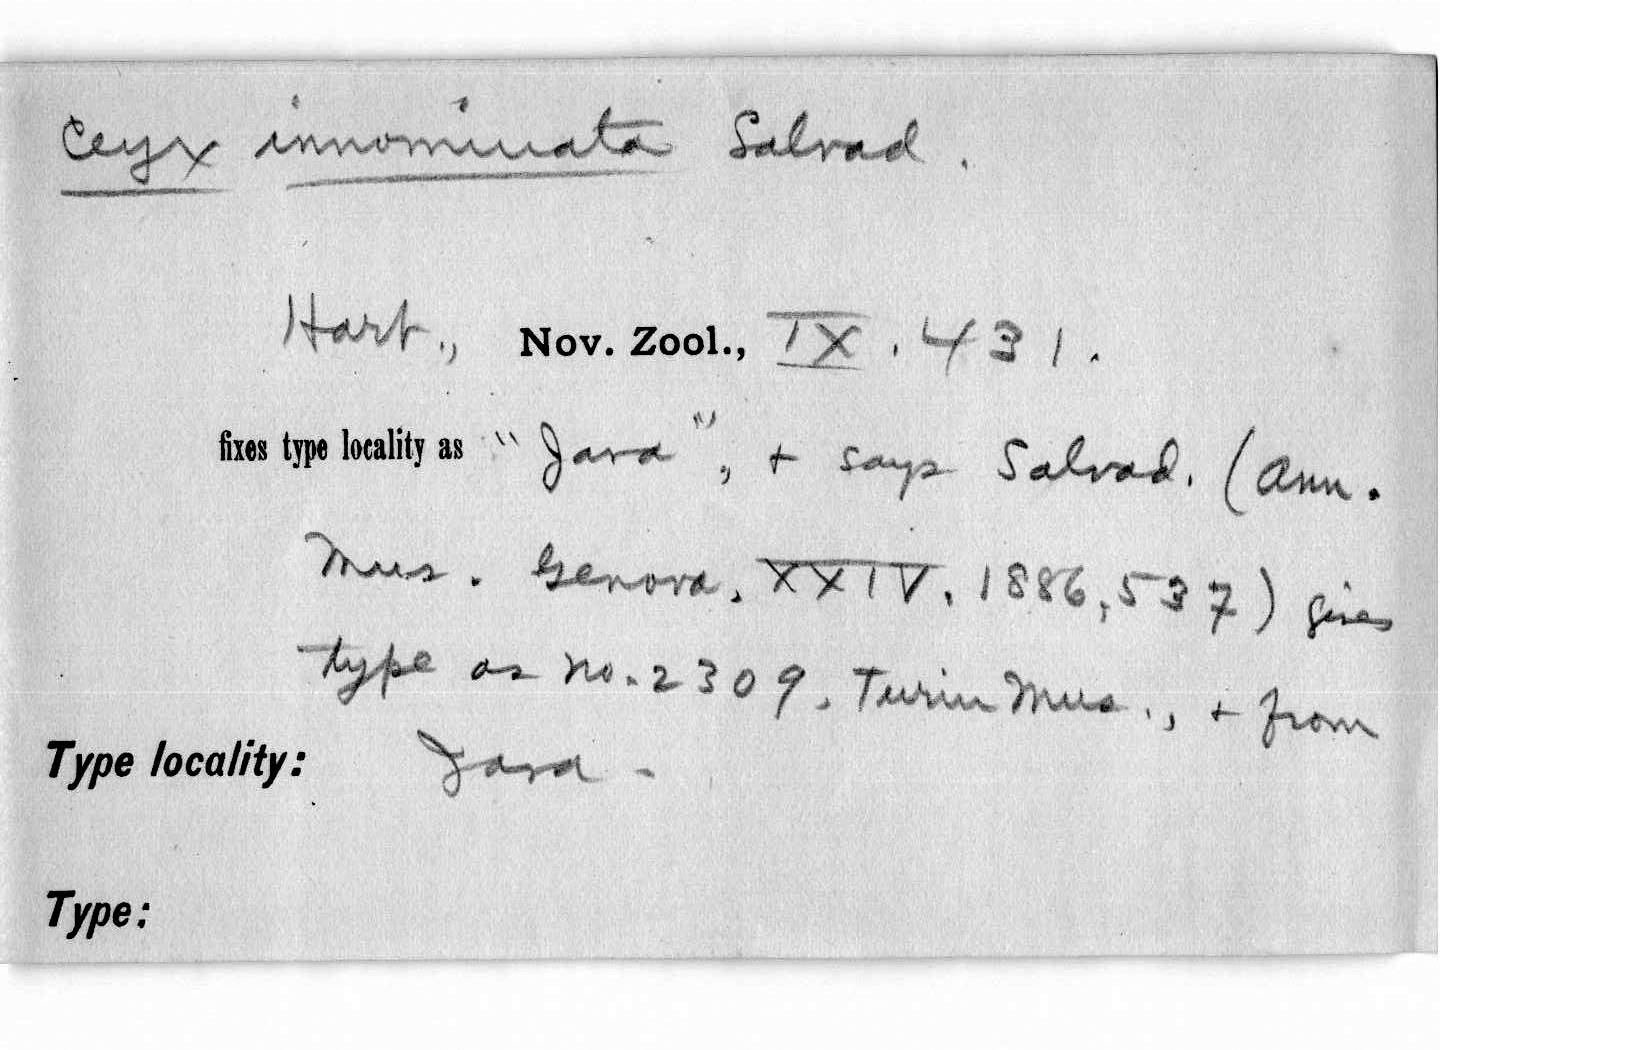 Ceyx innominata Salvad.
Hart., Nov. Zool., IX. 431.
fixes type locality as "Java", + says Salvad. (Ann.
Mus. Genova, XXIV, 1886, 537) gives
type as no. 2309, Turin Mus., + from
Type locality: Java -
Type: